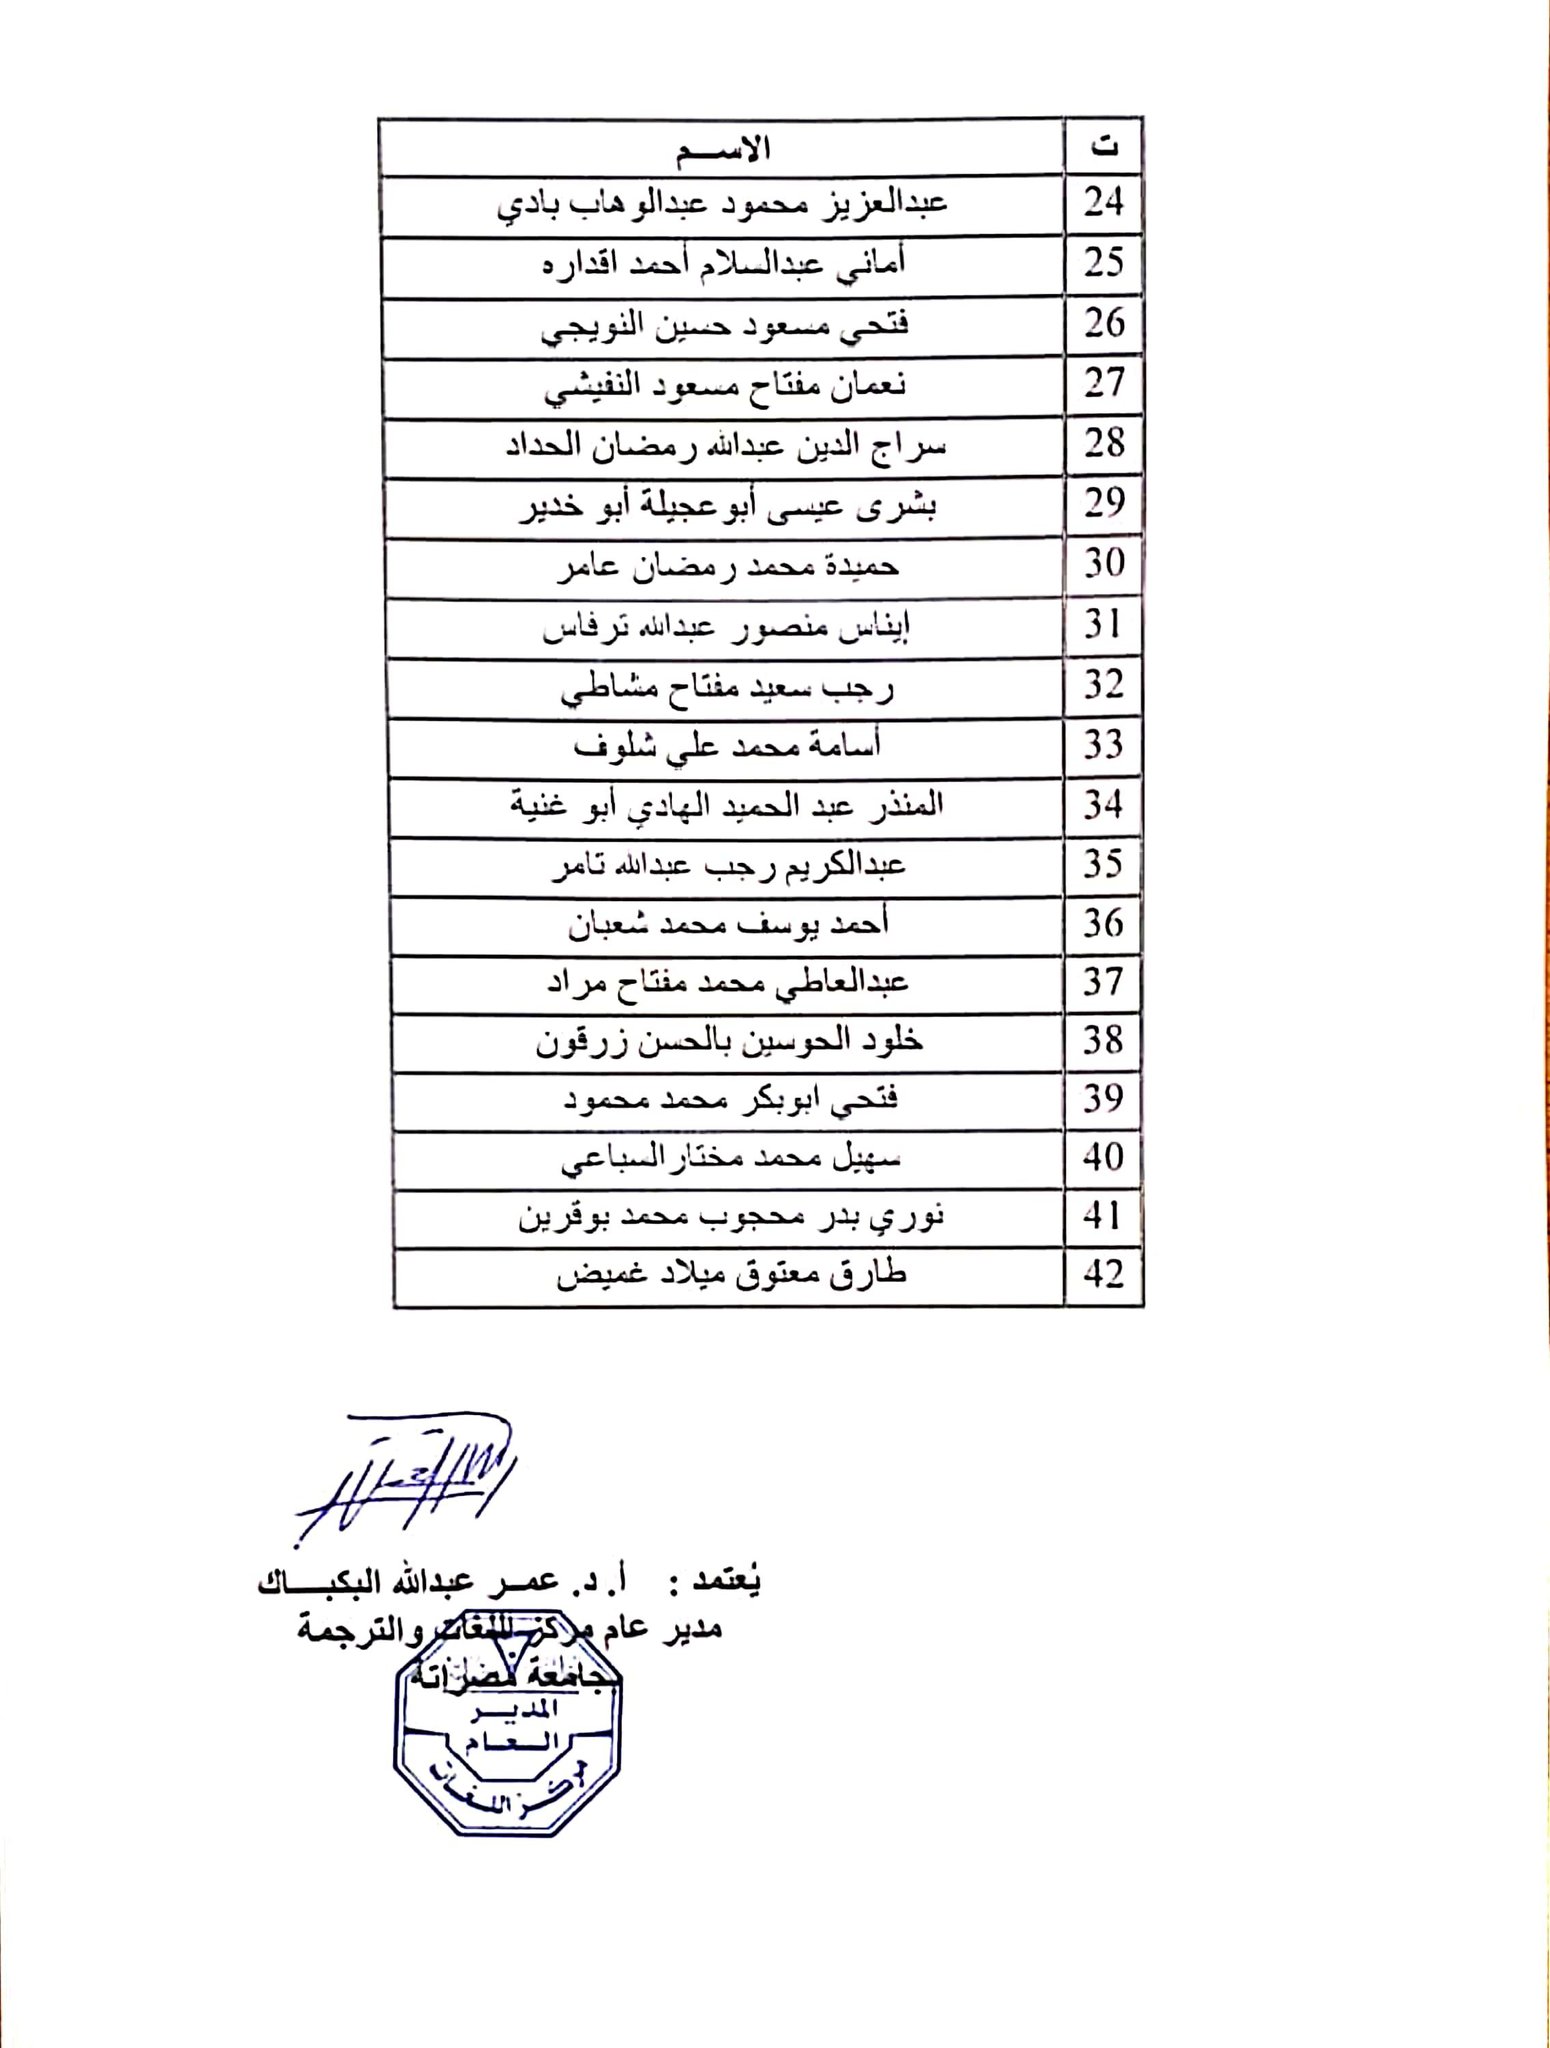 ت الاسم
24 عبدالعزيز محمود عبدالوهاب بادي
25 أماني عبدالسلام أحمد اقداره
26 فتحي مسعود حسين النويجي
27 نعمان مفتاح مسعود النفيشي
28 سراج الدين عبدالله رمضان الحداد
29 بشرى عيسى أبوعجيلة أبو خدير
30 حميدة محمد رمضان عامر
31 إيناس منصور عبدالله ترفاس
32 رجب سعيد مفتاح مشاطي
33 أسامة محمد علي شلوف
34 المنذر عبد الحميد الهادي أبو غنية
35 عبدالكريم رجب عبدالله تامر
36 أحمد يوسف محمد شعبان
37 عبدالعاطي محمد مفتاح مراد
38 خلود الحوسين بالحسن زرقون
39 فتحي ابوبكر محمد محمود
40 سهيل محمد مختار السباعي
41 نوري بدر محجوب محمد بوقرين
42 طارق معتوق ميلاد غميض
يُعتمد : أ. د. عمر عبدالله البكباك
مدير عام مركز اللغات والترجمة
بجامعة مصراتة
المدير
العام
مركز اللغات